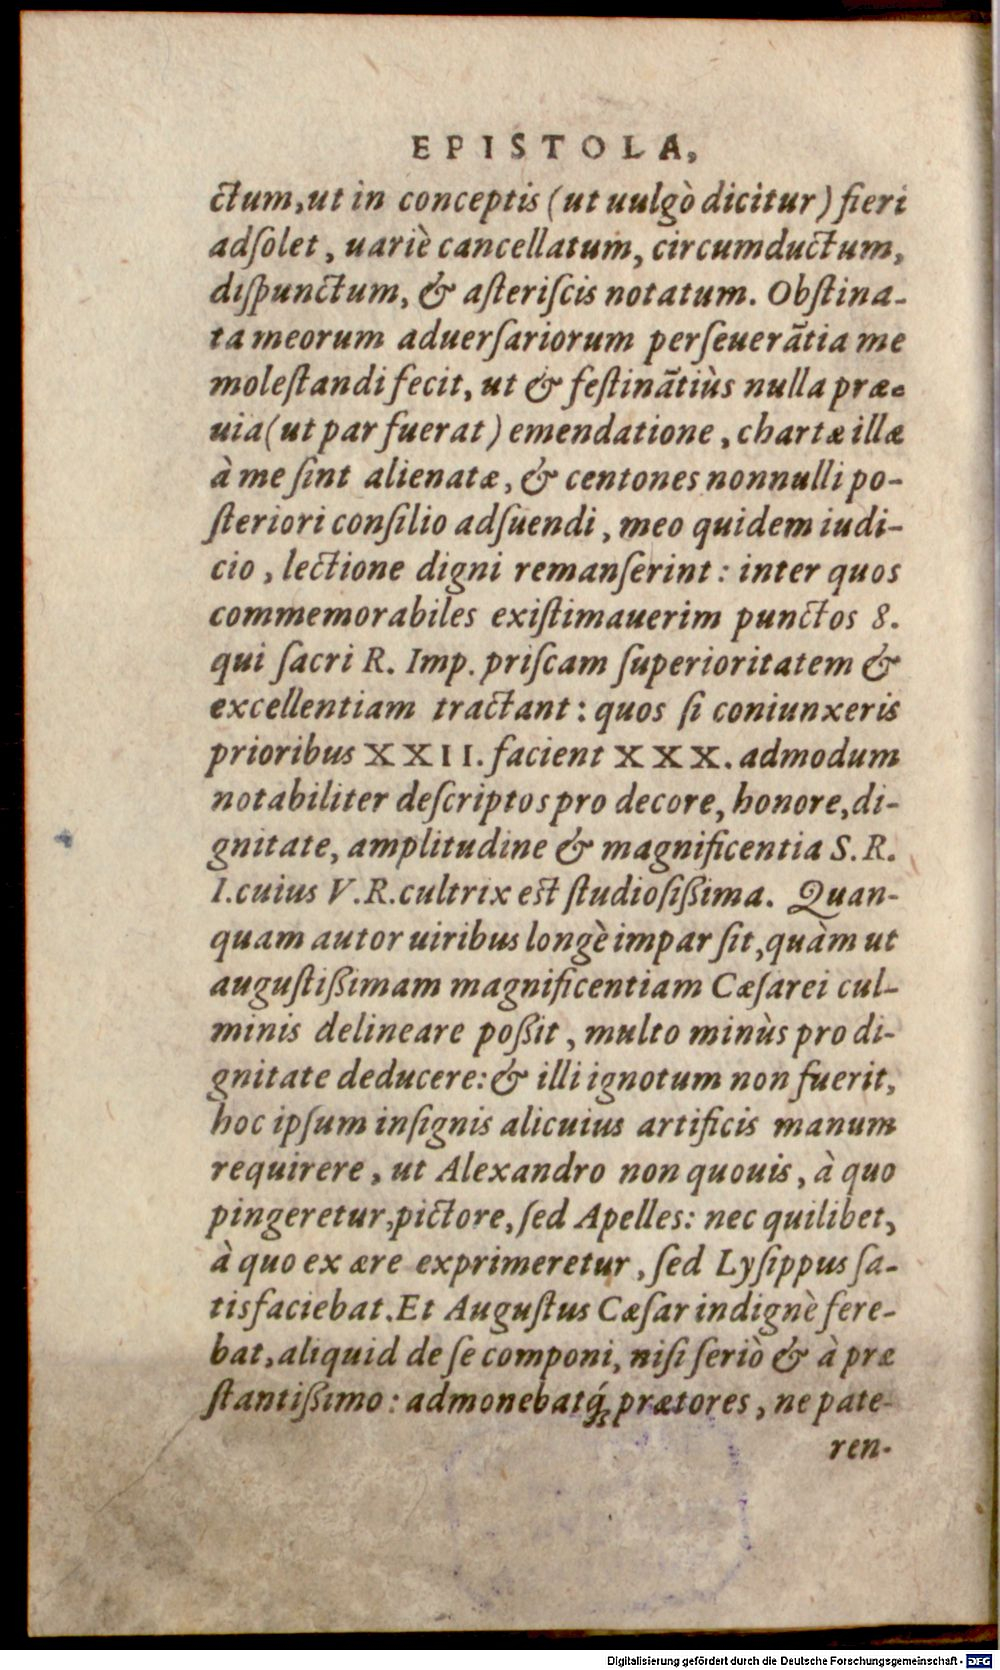 EPISTOLA,
ctum, ut in conceptis (ut uulgò dicitur) fieri
adſolet, uariè cancellatum, circumductum,
diſpunctum, & aſteriſcis notatum. Obſtina-
ta meorum aduerſariorum perſeuerãtia me
moleſtandi fecit, ut & feſtinãtiùs nulla præ-
uia (ut par fuerat) emendatione, chartæ illæ
à me ſint alienatæ, & centones nonnulli po-
ſteriori conſilio adſuendi, meo quidem iudi-
cio, lectione digni remanſerint: inter quos
commemorabiles exiſtimauerim punctos 8.
qui ſacri R. Imp. priſcam ſuperioritatem &
excellentiam tractant: quos ſi coniunxeris
prioribus XXII. facient XXX. admodum
notabiliter deſcriptos pro decore, honore, di-
gnitate, amplitudine & magnificentia S. R.
I. cuius V. R. cultrix eſt ſtudioſißima. Quan-
quam autor uiribus longè impar ſit, quàm ut
auguſtißimam magnificentiam Cæſarei cul-
minis delineare poßit, multo minùs pro di-
gnitate deducere: & illi ignotum non fuerit,
hoc ipſum inſignis alicuius artificis manum
requirere, ut Alexandro non quouis, à quo
pingeretur, pictore, ſed Apelles: nec quilibet,
à quo ex ære exprimeretur, ſed Lyſippus ſa-
tisfaciebat. Et Auguſtus Cæſar indignè fere-
bat, aliquid de ſe componi, niſi ſeriò & à præ
ſtantißimo: admonebatq́; prætores, ne pate-
ren-
Digitalisierung gefördert durch die Deutsche Forschungsgemeinschaft - DFG